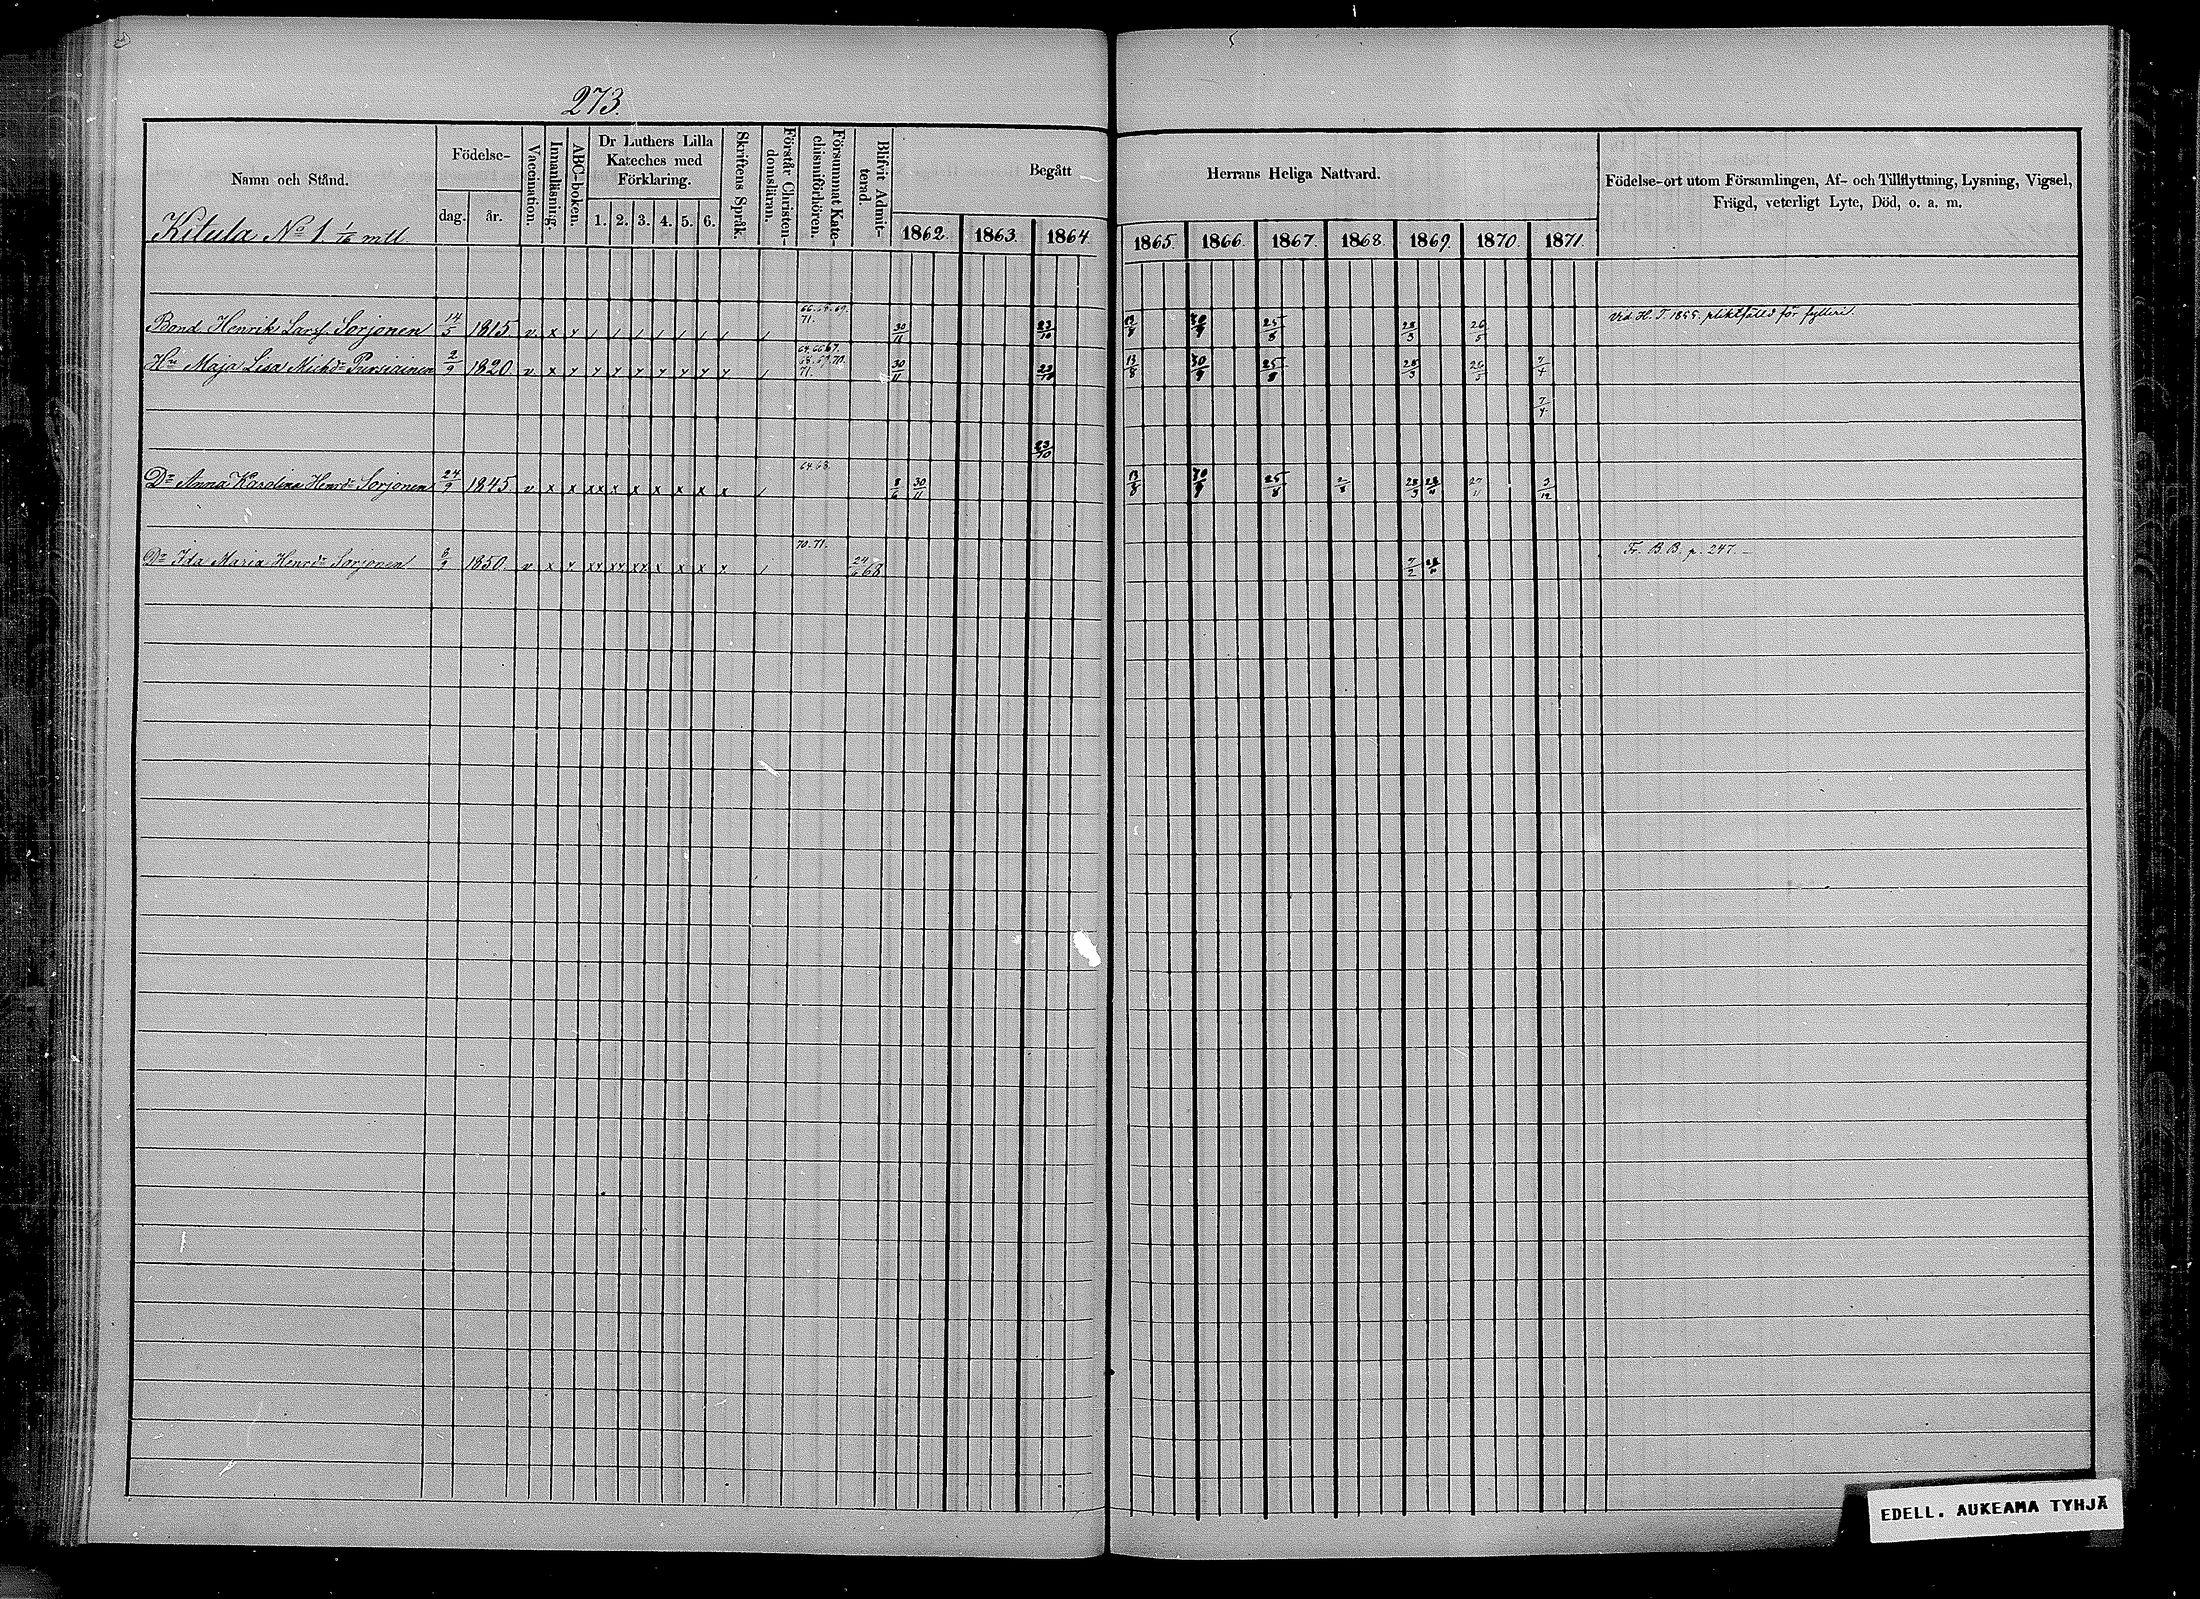 273.
Namn och Stånd.
Födelse-
dag. år.
Vaccination.
Innanläsning.
ABC-boken.
Dr Luthers Lilla
Kateches med
Förklaring.
1. 2. 3. 4. 5. 6.
Skriftens Språk.
Förstår Christen-
domsläran.
Försummat Kate-
chismiförhören.
Blifvit Admit-
terad.
Begått
Herrans Heliga Nattvard.
1862. 1863. 1864. 1865. 1866. 1867. 1868. 1869. 1870. 1871.
Födelse-ort utom Församlingen, Af- och Tillflyttning, Lysning, Vigsel,
Frägd, veterligt Lyte, Död, o. a. m.
Kitula No 1. 1/16 mtl.
66. 68. 69.
71.
Bond. Henrik Larsf. Sorjonen 14/5 1815. v x y / / / / / / / / 30/11 23/10 13/8 30/9 25/8 28/3 26/5 vid H. T. 1855. pliktfälld för fylleri.
71.
Hu Maja Lisa Michdr Pursiainen 2/9 1820. v x y y y y y y y y / 30/11 23/10 13/8 30/9 25/8 28/3 26/5 7/4
7/4
23/10
64. 68.
Dr Anna Karolina Henrdr Sorjonen 24/9 1845 v x x xx x x x x x x / 8/6 30/11 13/8 30/9 25/8 2/8 28/3 27/11 3/12
70. 71.
Dr Ida Maria Henrdr Sorjonen 1850. v x y xy xy xx x x x y / 24/6 68 7/2 Fr. B. B. p. 247. –
EDELL. AUKEAMA TYHJÄ